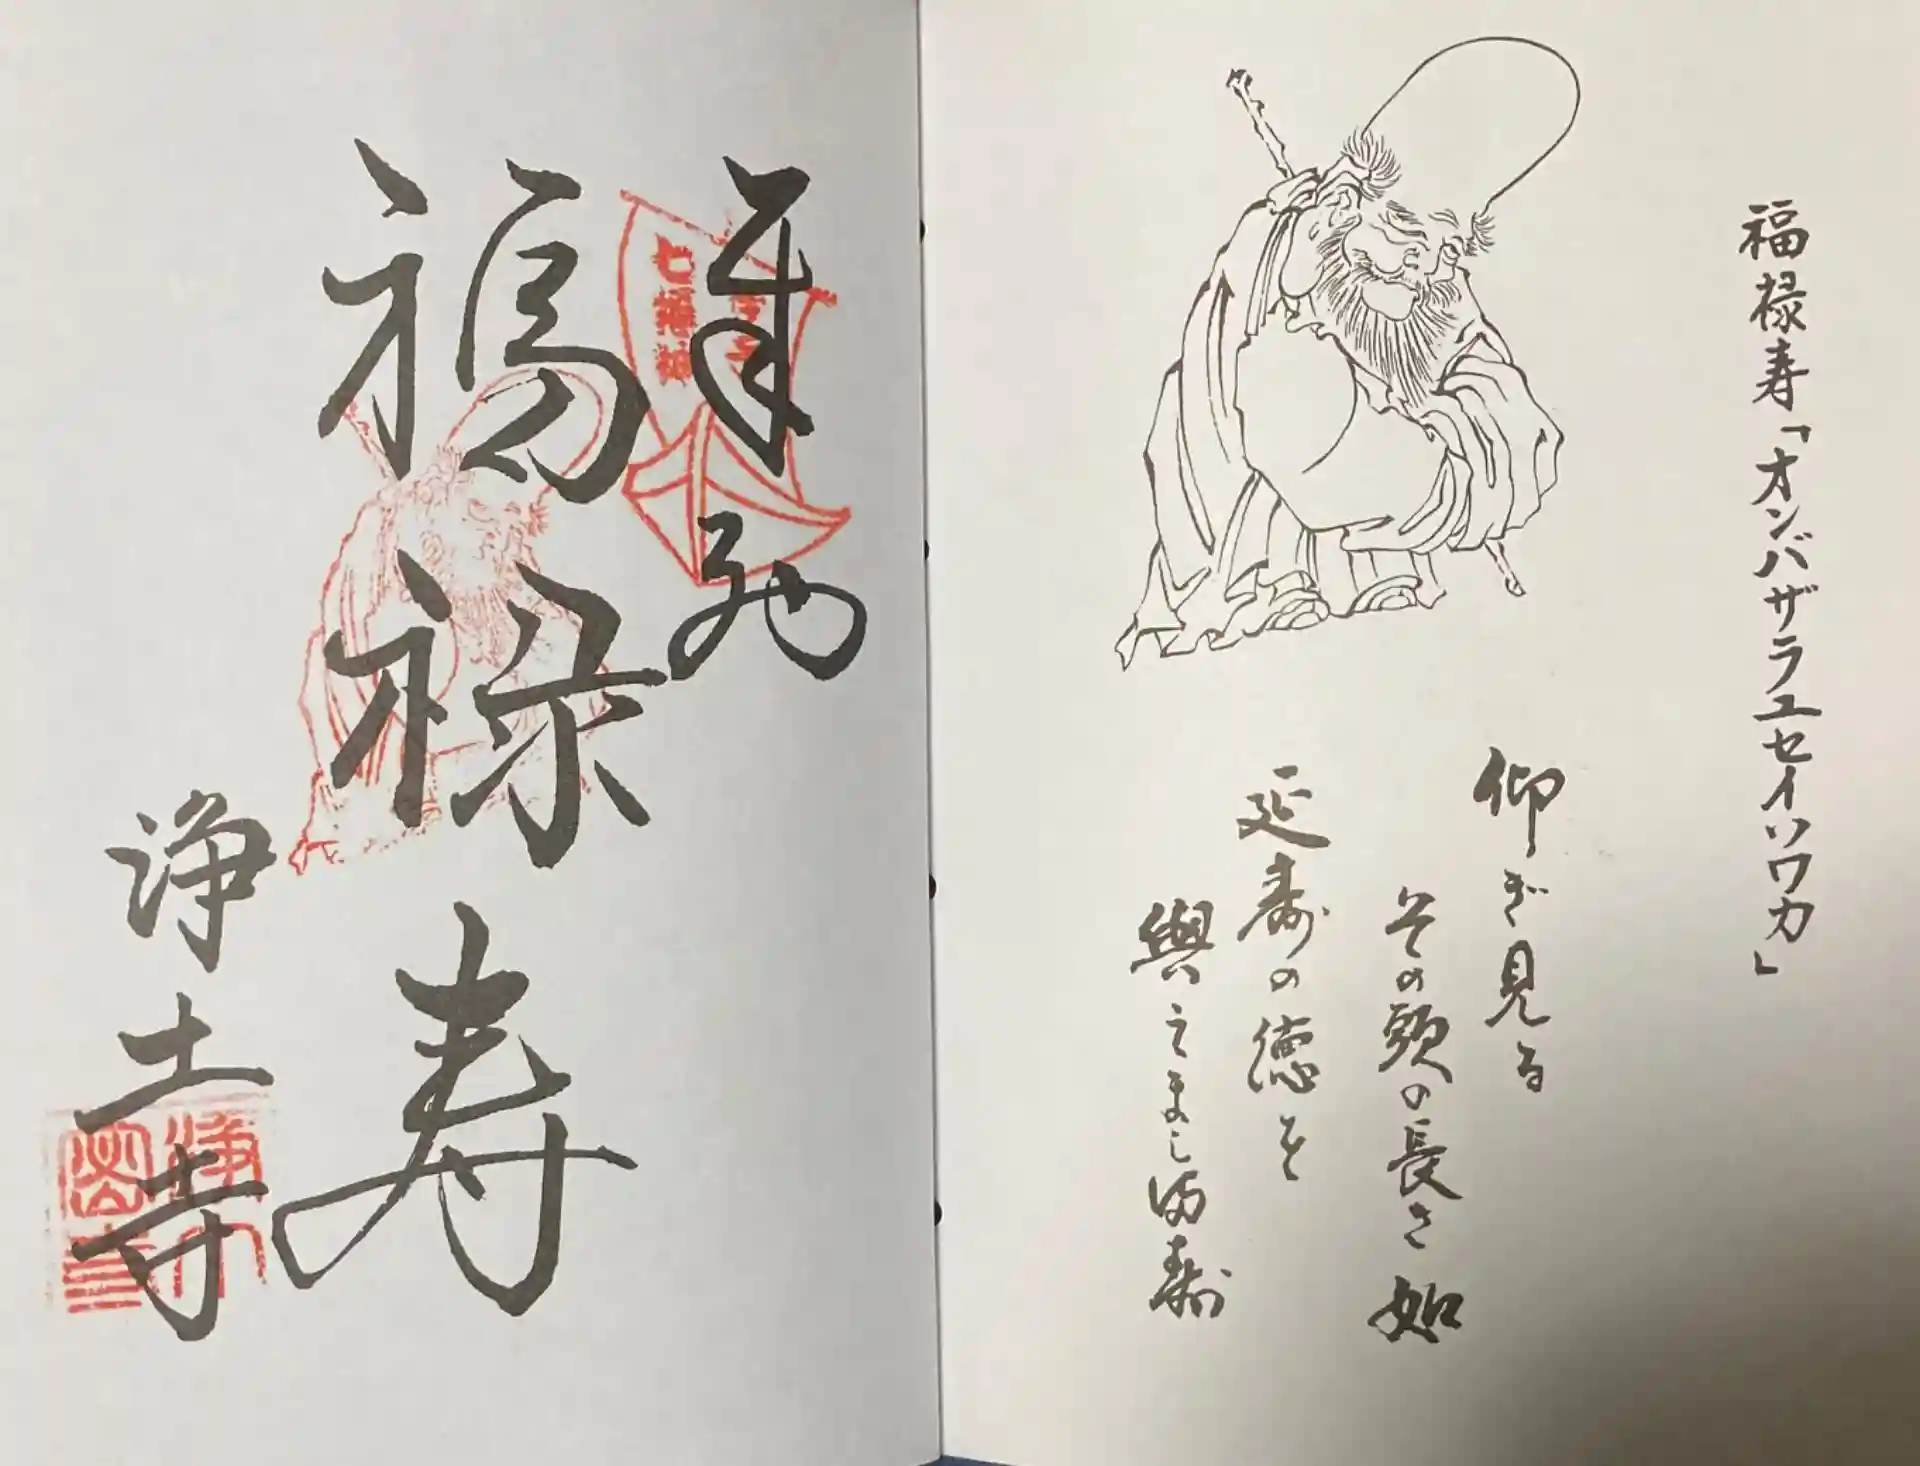 福禄寿「オンバザラユセイソワカ」
仰ぎ見る
その頭の長さ如
延寿の徳を
與えまし満寿
奉拝
福禄寿
浄土寺
七福神